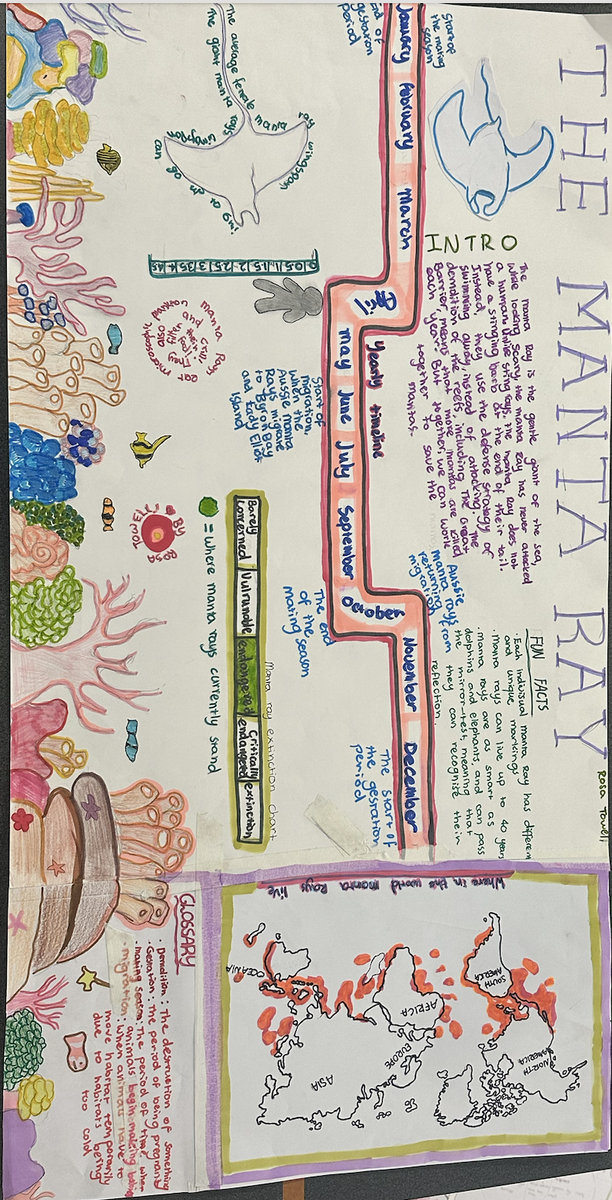 THE MANTA RAY
INTRO
The Manta Ray is the gentle giant of the sea,
while looking scary, the manta Ray has never attacked
a human. Unlike sting rays, the manta Ray does not
have a stinging barb at the end of their tail.
Instead, they use the defense strategy of
swimming away, instead of attacking. The
demolition of the reefs, including The Great
Barrier, means that more mantas are killed
each year. But together, we can work
together to save the
mantas.
FUN FACTS
Each individual manta Ray has different
and unique markings
manta rays can live up to 40 years
manta rays are as smart as
dolphins and elephants, and can pass
the mirror-test, meaning that
they can recognise their
reflection.
Start of
the mating
season
Yearly timeline
Aussie
Manta rays
returning from
migration
January February March April May June July September October November December
end of
gestation
period
Start of
migration,
when the
Aussie manta
Rays migrate
to Byron Bay
and Lady Elliot
Island
The end
of the
mating season
The start of
the gestation
period
The average female manta ray wingspan
The giant manta rays wingspan can
0 0.5 1 1.5 2 2.5 3 3.5 4 4.5
Manta Rays
microscopic
BY
ROSA
Manta ray extinction chart
Barely concerned
Vulrunable
endangered
Critically endangered
extinction
= Where manta rays currently stand
Where in the world manta Rays live
NORTH AMERICA
SOUTH AMERICA
EUROPE
AFRICA
ASIA
OCEANIA
GLOSSARY
Demolition: The destruction of something
Gestation: The period of being pregnant
mating season: The period of time when
animals begin making babies
migration: When animals have to
move habitat temporarily
due to habitats being
too cold